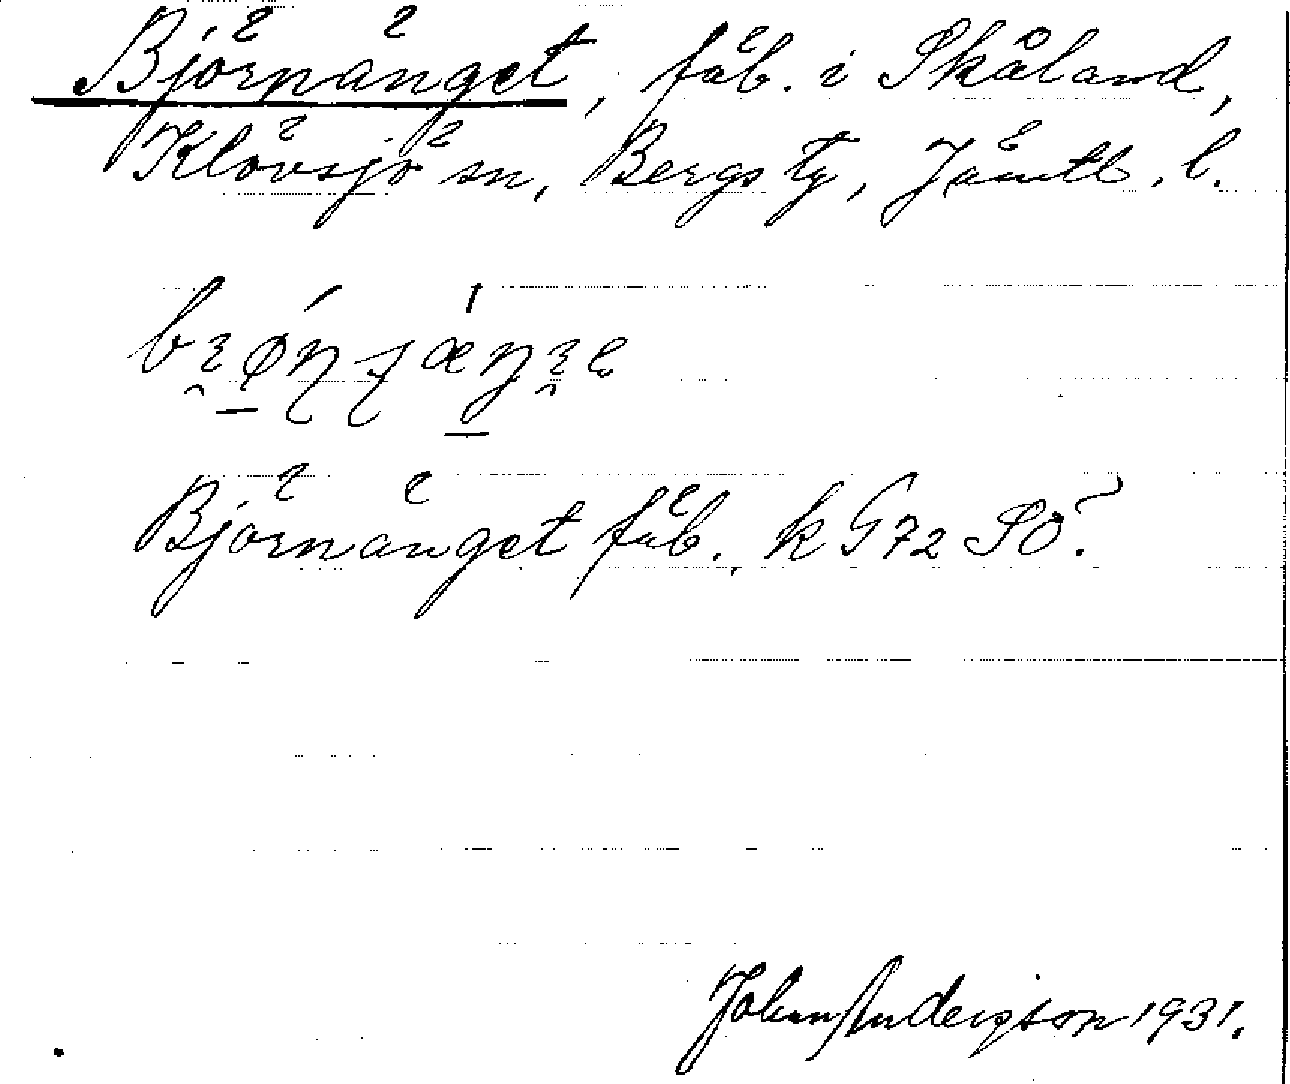 Björnänget, fäb. i Skåland,
Klövsjö sn, Bergs tg, Jämtl. l.
Björnänget fäb., k G72 SO.
Johan Andersson 1931.